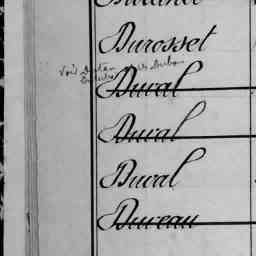 Durosset
Voir
Duval
Duval
Duval
Dureau